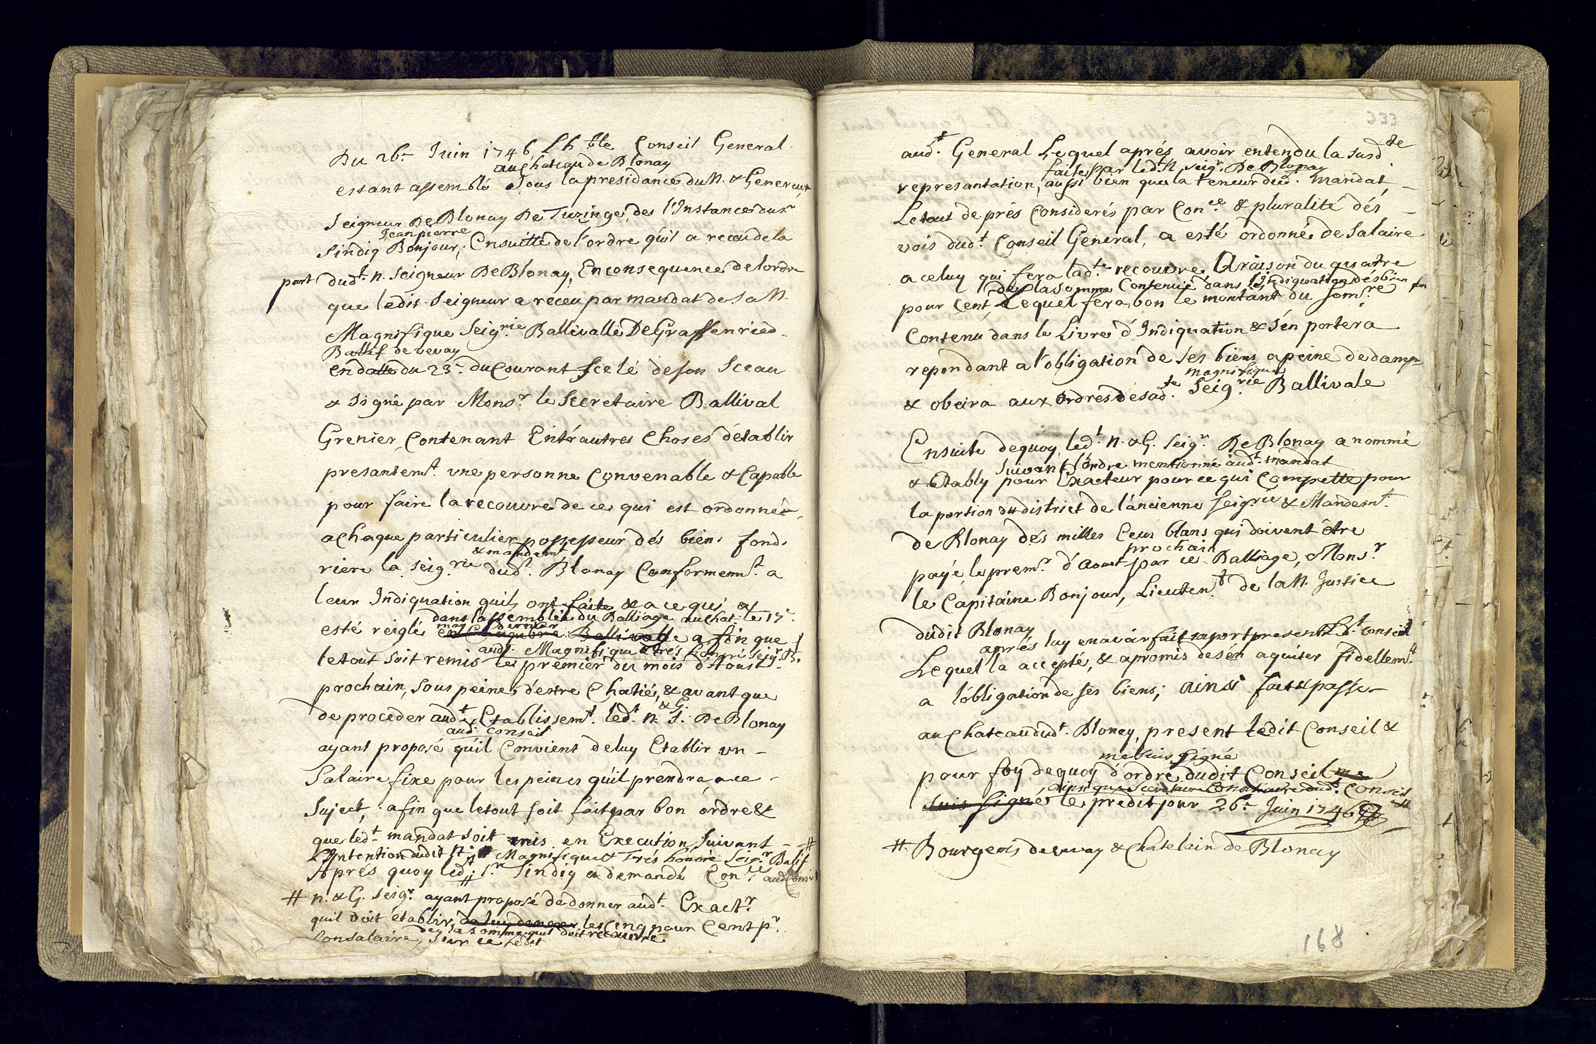 Du 26e. Juin 1746 Lh.ble Conseil General
au Chateau de Blonay
estant assemblé sous la presidance du N. & Genereux
Seigneur De Blonay De Tuzinge, des l'Instance du Sr
Jean pierre
Sindiq Bonjour, Ensuitte de l'ordre qu'il a receu de la
part dudt. n. Seigneur De Blonay, En consequence de l'ordre
que ledit Seigneur a receu par mandat de Sa N.
Magnifique Seigrie Ballivalle De Graffenried
Baillif de vevay
En datte du 23e. du Courant scelé de son Sceau
& Signé par Monsr. le Secretaire Ballival
Grenier, Contenant Entr'autres Choses d'établir
presantemt. une personne Convenable & Capable
pour faire la recouvre de ce qui est ordonnée
a chaque particulier possesseur dés biens fonds
& mandemt
riere la Seigrie dudt. Blonay Conformemt. a
leur Indiquation quils ont faite & a ce qui a
dans l'assemblée du Balliage au Chat. le 17e
esté reiglé a fin que
audt. Magnifique & trés honoré Seigr. B.
le tout soit remis le premier du mois d'Aoust
prochain, Sous peine d'estre Chatiés, & avant que
de proceder audt. Etablissemt. ledt. n. & G. S. De Blonay
audt. Conseil
ayant proposé qu'il Convient de luy Etablir un
Salaire fixe pour les peines qu'il prendra, a ce
Suject, afin que le tout soit fait par bon ordre &
que ledt. mandat soit mis en Execution, Suivant #
L'Intention dudit Magnifique & Trés honoré Seigr. Balif
Aprés quoy ledt. Sr. Sindiq a demandé Conce. aud. Conseil
# n. & G. Seigr. ayant proposé de donner audt. Exactr.
quil doit établir, de luy donner les Cinq pour Cent pr.
de la somme quil doit recouvre
Son salaire, Sur ce fait
333
audt. General Lequel aprés avoir entendu la susdte
faite par ledt. N. Seigr. De Blonay
represantation, aussi bien que la teneur dud. mandat,
Le tout de prés Considerés par Conce. & pluralité dés
vois dudt. Conseil General, a esté ordonné de Salaire
a celuy qui fera ladte. recouvre A raison du quatre
de la somme Contenue dans l'indiquation des biens
pour Cent, Lequel fera bon le montant du
Contenu dans le Livre d'Indiquation & s'en portera
repondant a l'obligation de ses biens, a peine de damp.
magnifique
& obeira aux Ordres de sadte. Seigrie Ballivale
Ensuite dequoy, ledt. n. & G. Seigr. De Blonay a nommé
suivant l'ordre mentionné audt. mandat
& Etably pour Exacteur pour ce qui Compette pour
la portion du district de l'ancienne Seigrie & Mandemt.
de Blonay dés milles Ecus blans qui doivent être
prochain
payé le premr. d'aout par ce Balliage, Monsr
le Capitaine Bonjour, Lieutent. de la N. Justice
dudit Blonay
aprés luy en avoir fait raport present Ledt. Conseil
Lequel la accepté, & a promis de s'en aquiter fidellemt.
a l'obligation de ses biens; ainsi fait & passé
au Chateau dudt. Blonay, present ledit Conseil &
me suis signé
pour foy dequoy d'ordre dudit Conseil me
ainsi que Secretaire dudt. Conseil #
suis signé le predit jour 26e. Juin 1746
# Bourgeois de vevay & Chatelain de Blonay
168